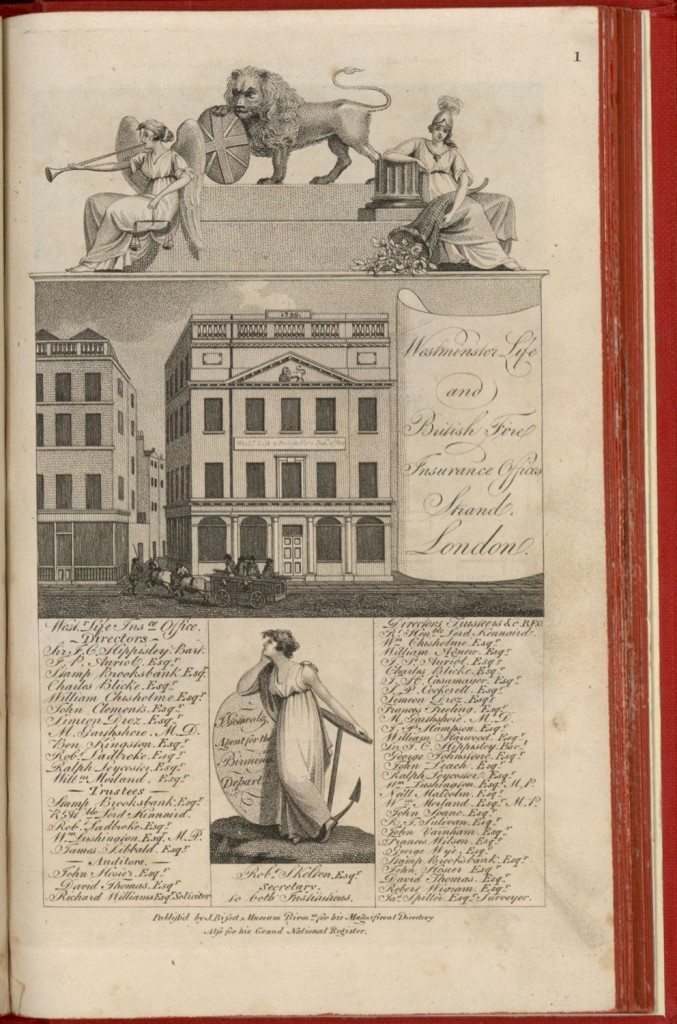 1
1792
Westminster Life
and
British Fire
Insurance Offices
Strand.
London.
Westr. Life Insce. Office.
Directors
Sir J. C. Hippisley Bart.
J. P. Auriol Esqr.
Stamp Brooksbank Esqr.
Charles Blicke Esqr.
William Chisholme Esqr.
John Clements Esqr.
Simeon Droz Esqr.
M. Garthshore M.D.
Ben. Kingston Esqr.
Robt. Ladbroke Esqr.
Ralph Leycester Esqr.
Willm. Morland Esqr.
Trustees
Stamp Brooksbank Esqr.
Rt. Hble. Lord Kinnaird.
Robt. Ladbroke Esqr.
Wm. Lushington Esq. M.P.
James Sibbald Esqr.
Auditors
John Hosier Esqr.
David Thomas Esqr.
Richard Williams Esqr. Solicitor
Agent for the
Birmin
Depart
Robt. Skelton Esqr.
Secretary
to both Institutions.
Directors Trustees &c. B.F.O.
Rt. Honble. Lord Kennaird
Wm. Chisholme Esqr.
William Agnew Esqr.
J. P. Auriol Esqr.
Charles Blicke Esqr.
Casamajor Esqr.
S. P. Cockerell Esqr.
Simeon Droz Esqr.
Francis Freeling Esqr.
M. Garthshore M.D.
Hampson Esqr.
William Harwood Esqr.
Sir J. C. Hippisley Bart.
George Johnstone Esqr.
John Leach Esqr.
Ralph Leycester Esqr.
Wm. Lushington Esqr. M.P.
Neill Malcolm Esqr.
Wm. Morland Esqr. M.P.
John Soane Esqr.
R. J. Sulivan Esqr.
John Varnham Esqr.
Francis Wilson Esqr.
George Wyld Esqr.
Stamp Brooksbank Esqr.
John Hosier Esqr.
David Thomas Esqr.
Robert Wigram Esqr.
Jas. Spiller Esqr. Surveyor.
Publish'd by J. Bisset, Museum Birmm. for his Magnificent Directory
Also for his Grand National Register.